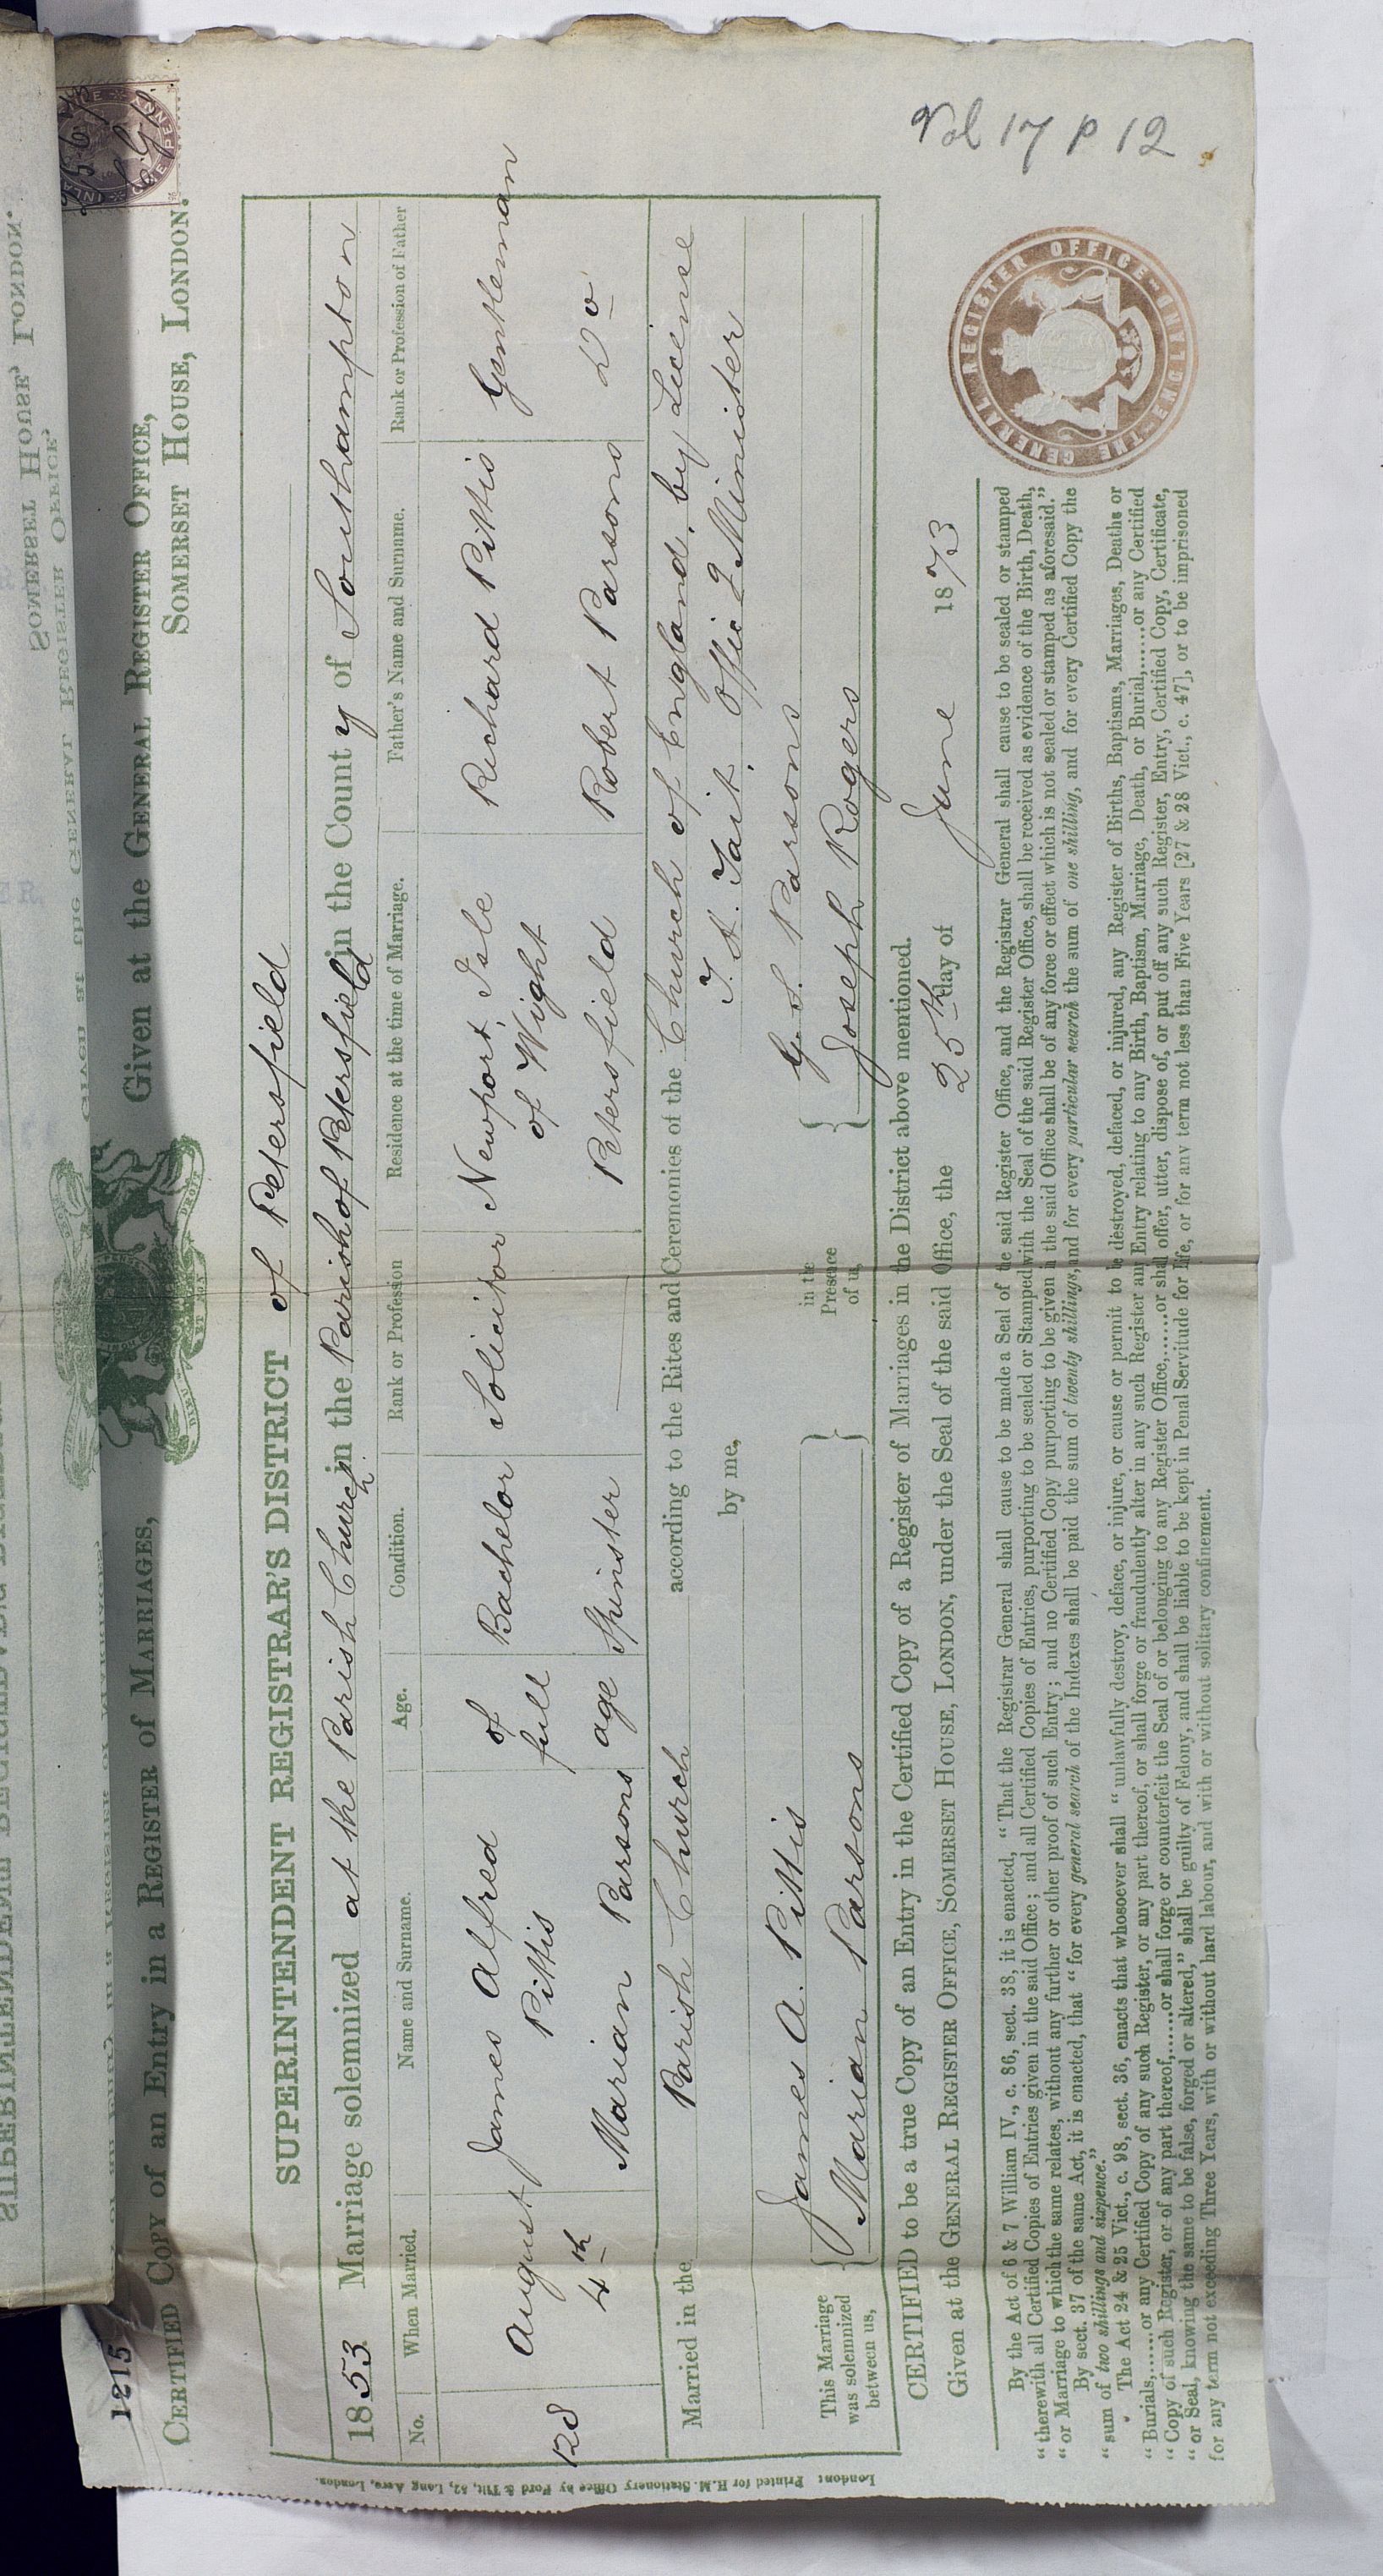 1215
CERTIFIED Copy of an Entry in a REGISTER of MARRIAGES, Given at the GENERAL REGISTER OFFICE,
SOMERSET HOUSE, LONDON.
SUPERINTENDENT REGISTRAR'S DISTRICT of Petersfield
1853 Marriage solemnized at the Parish Church in the Parish of Petersfield in the County of Southampton
No. When Married. Name and Surname. Age. Condition. Rank or Profession Residence at the time of Marriage. Father's Name and Surname. Rank or Profession of Father
128 August 4th James Alfred Pittis of full Bachelor Solicitor Newport, Isle of Wight Richard Pittis Gentleman
Marian Parsons age Spinster Petersfield Robert Parsons Do
Married in the Parish Church according to the Rites and Ceremonies of the Church of England, by License
by me, T. A. Tait, Offic g Minister
This Marriage was solemnized between us, { James A. Pittis } in the Presence of us, { G. L. Parsons
Marian Parsons Joseph Rogers
CERTIFIED to be a true Copy of an Entry in the Certified Copy of a Register of Marriages in the District above mentioned.
Given at the GENERAL REGISTER OFFICE, SOMERSET HOUSE, LONDON, under the Seal of the said Office, the 25th day of June 1873
By the Act of 6 & 7 William IV., c. 86, sect. 38, it is enacted, "That the Registrar General shall cause to be made a Seal of the said Register Office, and the Registrar General shall cause to be sealed or stamped
"therewith all Certified Copies of Entries given in the said Office; and all Certified Copies of Entries, purporting to be sealed or Stamped with the Seal of the said Register Office, shall be received as evidence of the Birth, Death,
"or Marriage to which the same relates, without any further or other proof of such Entry; and no Certified Copy purporting to be given in the said Office shall be of any force or effect which is not sealed or stamped as aforesaid."
By sect. 37 of the same Act, it is enacted, that "for every general search of the Indexes shall be paid the sum of twenty shillings, and for every particular search the sum of one shilling, and for every Certified Copy the
"sum of two shillings and sixpence."
The Act 24 & 25 Vict., c. 98, sect. 36, enacts that whosoever shall "unlawfully destroy, deface, or injure, or cause or permit to be destroyed, defaced, or injured, any Register of Births, Baptisms, Marriages, Deaths or
"Burials,......or any Certified Copy of any such Register, or any part thereof, or shall forge or fraudulently alter in any such Register any Entry relating to any Birth, Baptism, Marriage, Death, or Burial,......or any Certified
"Copy of such Register, or of any part thereof,......or shall forge or counterfeit the Seal of or belonging to any Register Office,......or shall offer, utter, dispose of, or put off any such Register, Entry, Certified Copy, Certificate,
"or Seal, knowing the same to be false, forged or altered," shall be guilty of Felony, and shall be liable to be kept in Penal Servitude for Life, or for any term not less than Five Years [27 & 28 Vict., c. 47], or to be imprisoned
for any term not exceeding Three Years, with or without hard labour, and with or without solitary confinement.
THE GENERAL REGISTER OFFICE ENGLAND
Vol 17 P 12
London: Printed for H.M. Stationery Office by Ford & Tilt, 52, Long Acre, London.